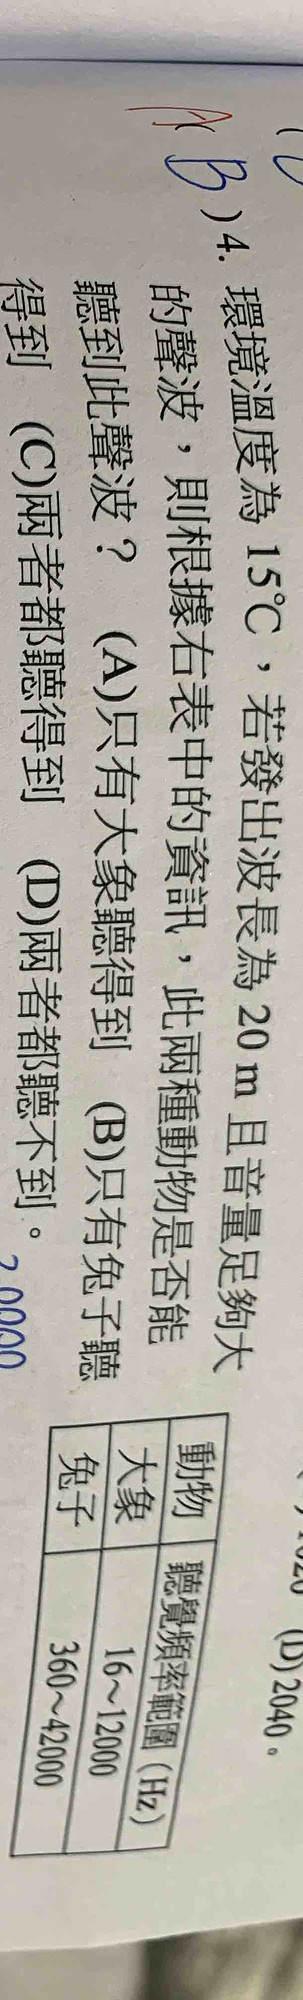 (D)2040。
A
(B)4. 環境溫度為 15℃，若發出波長為 20 m 且音量足夠大
的聲波，則根據右表中的資訊，此兩種動物是否能
聽到此聲波？ (A)只有大象聽得到 (B)只有兔子聽
得到 (C)兩者都聽得到 (D)兩者都聽不到。
動物 聽覺頻率範圍(Hz)
大象 16～12000
兔子 360～42000